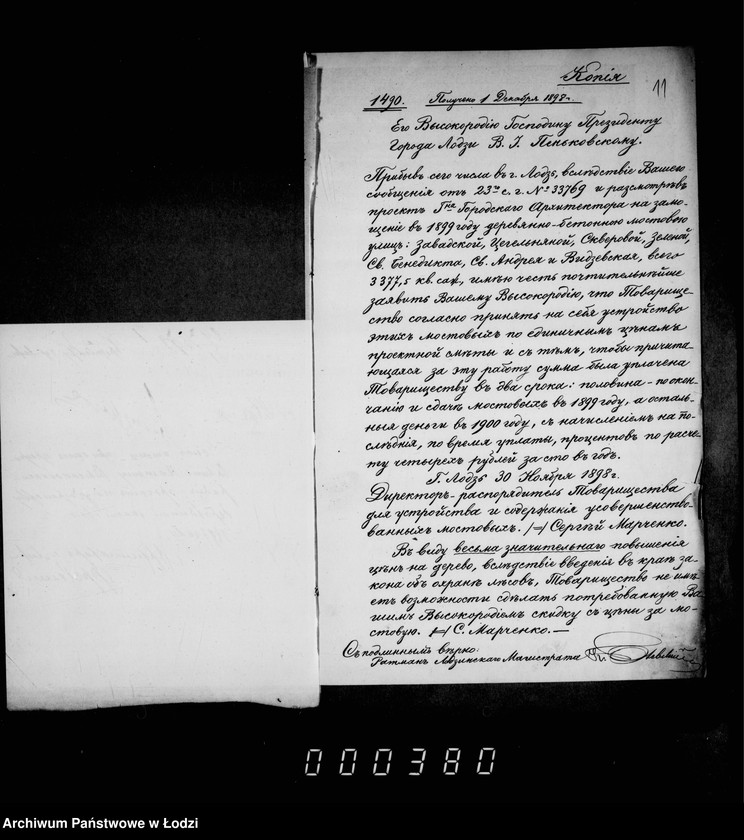 Копія
11
1490. Получено 1 Декабря 1898 г.
Его Высокородію Господину Президенту
Города Лодзи В. І. Пеньковскому.
Прибывъ сего числа въ г. Лодзь, вслѣдствіе Вашего
сообщенія отъ 23го с. г. № 33769 и разсмотрѣвъ
проектъ Гна Городского Архитектора на замо-
щеніе въ 1899 году деревянно-бетонною мостовою
улицъ: Завадской, Цегельняной, Скверовой, Зеленой,
Св. Бенедикта, Св. Андрея и Видзевская, всего
3377,5 кв. саж., имѣю честь почтительнѣйше
заявить Вашему Высокородію, что Товарище-
ство согласно принять на себя устройство
этихъ мостовыхъ по единичнымъ цѣнамъ
проектной смѣты и съ тѣмъ, чтобы причита-
ющаяся за эту работу сумма была уплачена
Товариществу въ два срока: половина - по окон-
чанію и сдачѣ мостовыхъ въ 1899 году, а осталь-
ныя деньги въ 1900 году, съ начисленіемъ на по-
слѣднія, по время уплаты, процентовъ по расче-
ту четырехъ рублей за сто въ годъ.
Г. Лодзь 30 Ноября 1898 г.
Директоръ-распорядитель Товарищества
для устройства и содержанія усовершенство-
ванныхъ мостовыхъ. /=/ Сергѣй Марченко.
Въ виду весьма значительнаго повышенія
цѣнъ на дерево, вслѣдствіе введенія въ краѣ за-
кона объ охранѣ лѣсовъ, Товарищество не имѣ-
етъ возможности сдѣлать потребованную Ва-
шимъ Высокородіемъ скидку съ цѣны за мо-
стовую. /=/ С. Марченко. —
Съ подлиннымъ вѣрно:
Ратманъ Лодзинскаго Магистрата
000380
Archiwum Państwowe w Łodzi